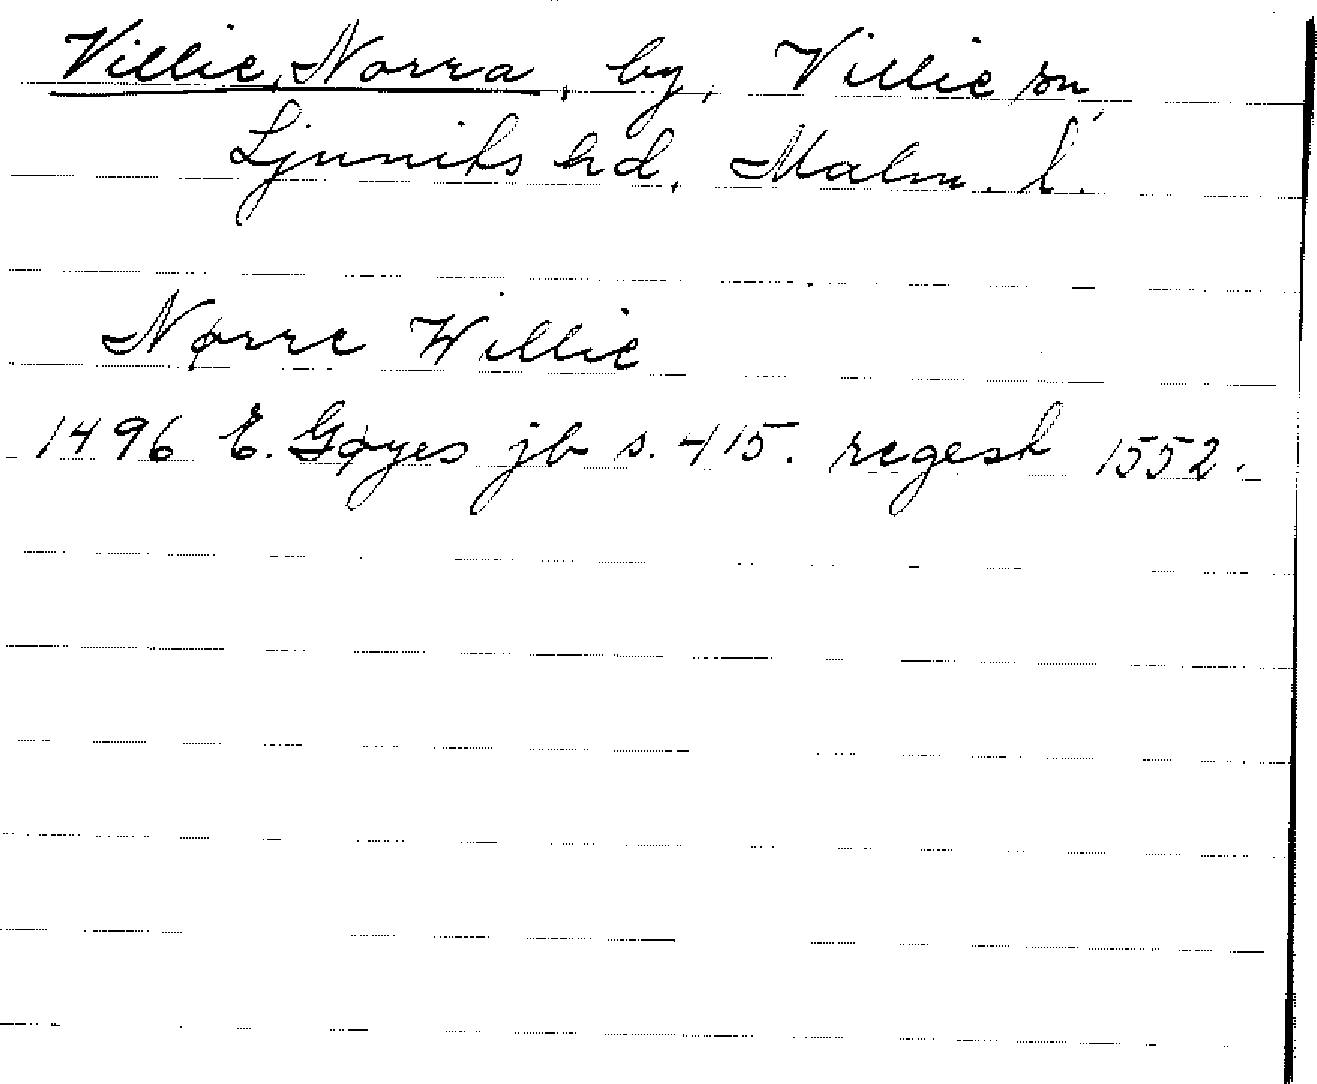 Villie, Norra, by, Villie sn,
Ljunits hd, Malm. l.
Nørre Willie
1496 E. Gøyes jb s. 415. regest 1552.